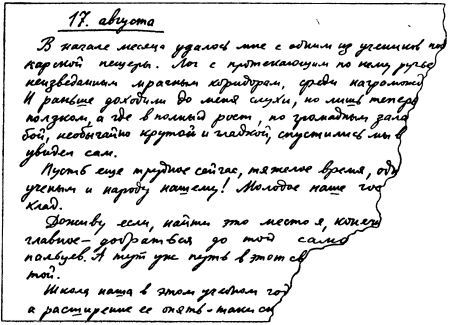 17. августа
В начале месяца удалось мне с одним из учеников по
карской пещеры. Лог с протекающим по нему ручье
неизведанным мрачным коридорам, среди нагромож
И раньше доходили до меня слухи, но лишь тепер
ползком, а где в полный рост, по громадным зала
бой, необычайно крутой и гладкой, спустились мы в
увидел сам.
Пусть еще трудное сейчас, тяжелое время, одн
ученым и народу нашему! Молодое наше гос
клад.
Доживу если, найти это место я, конечн
главное — добраться до той само
пальцев. А тут уж путь в этот св
той.
Школа наша в этом учебном год
а расширение ее опять-таки св